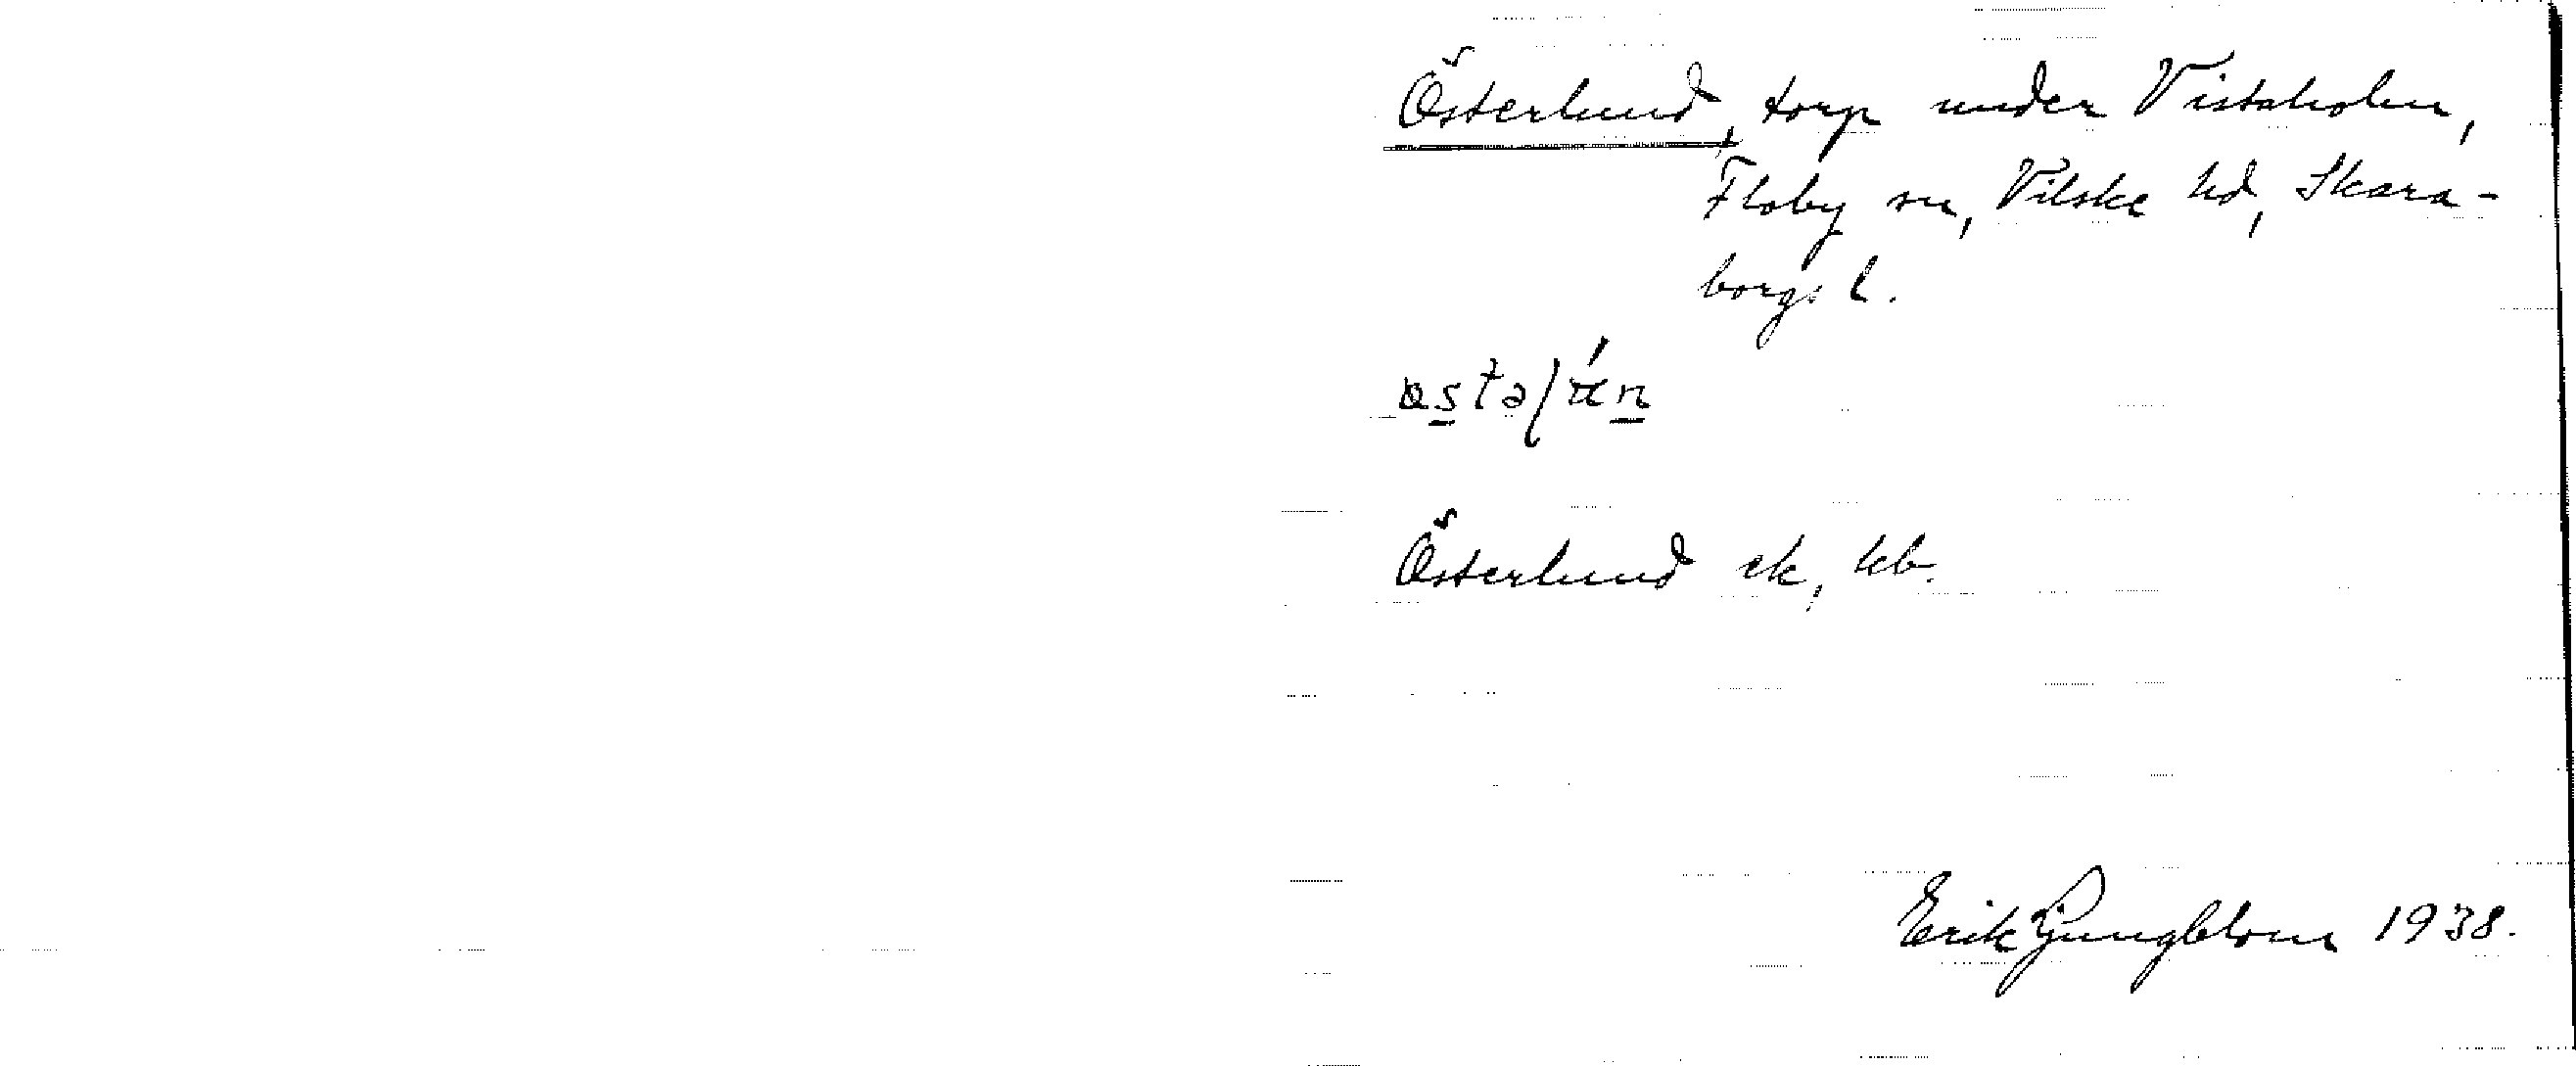 Österlund, torp under Vistaholm,
Floby sn, Vilske hd, Skara-
borgs l.
Österlund ek, hb.
Erik Ljungblom 1938.